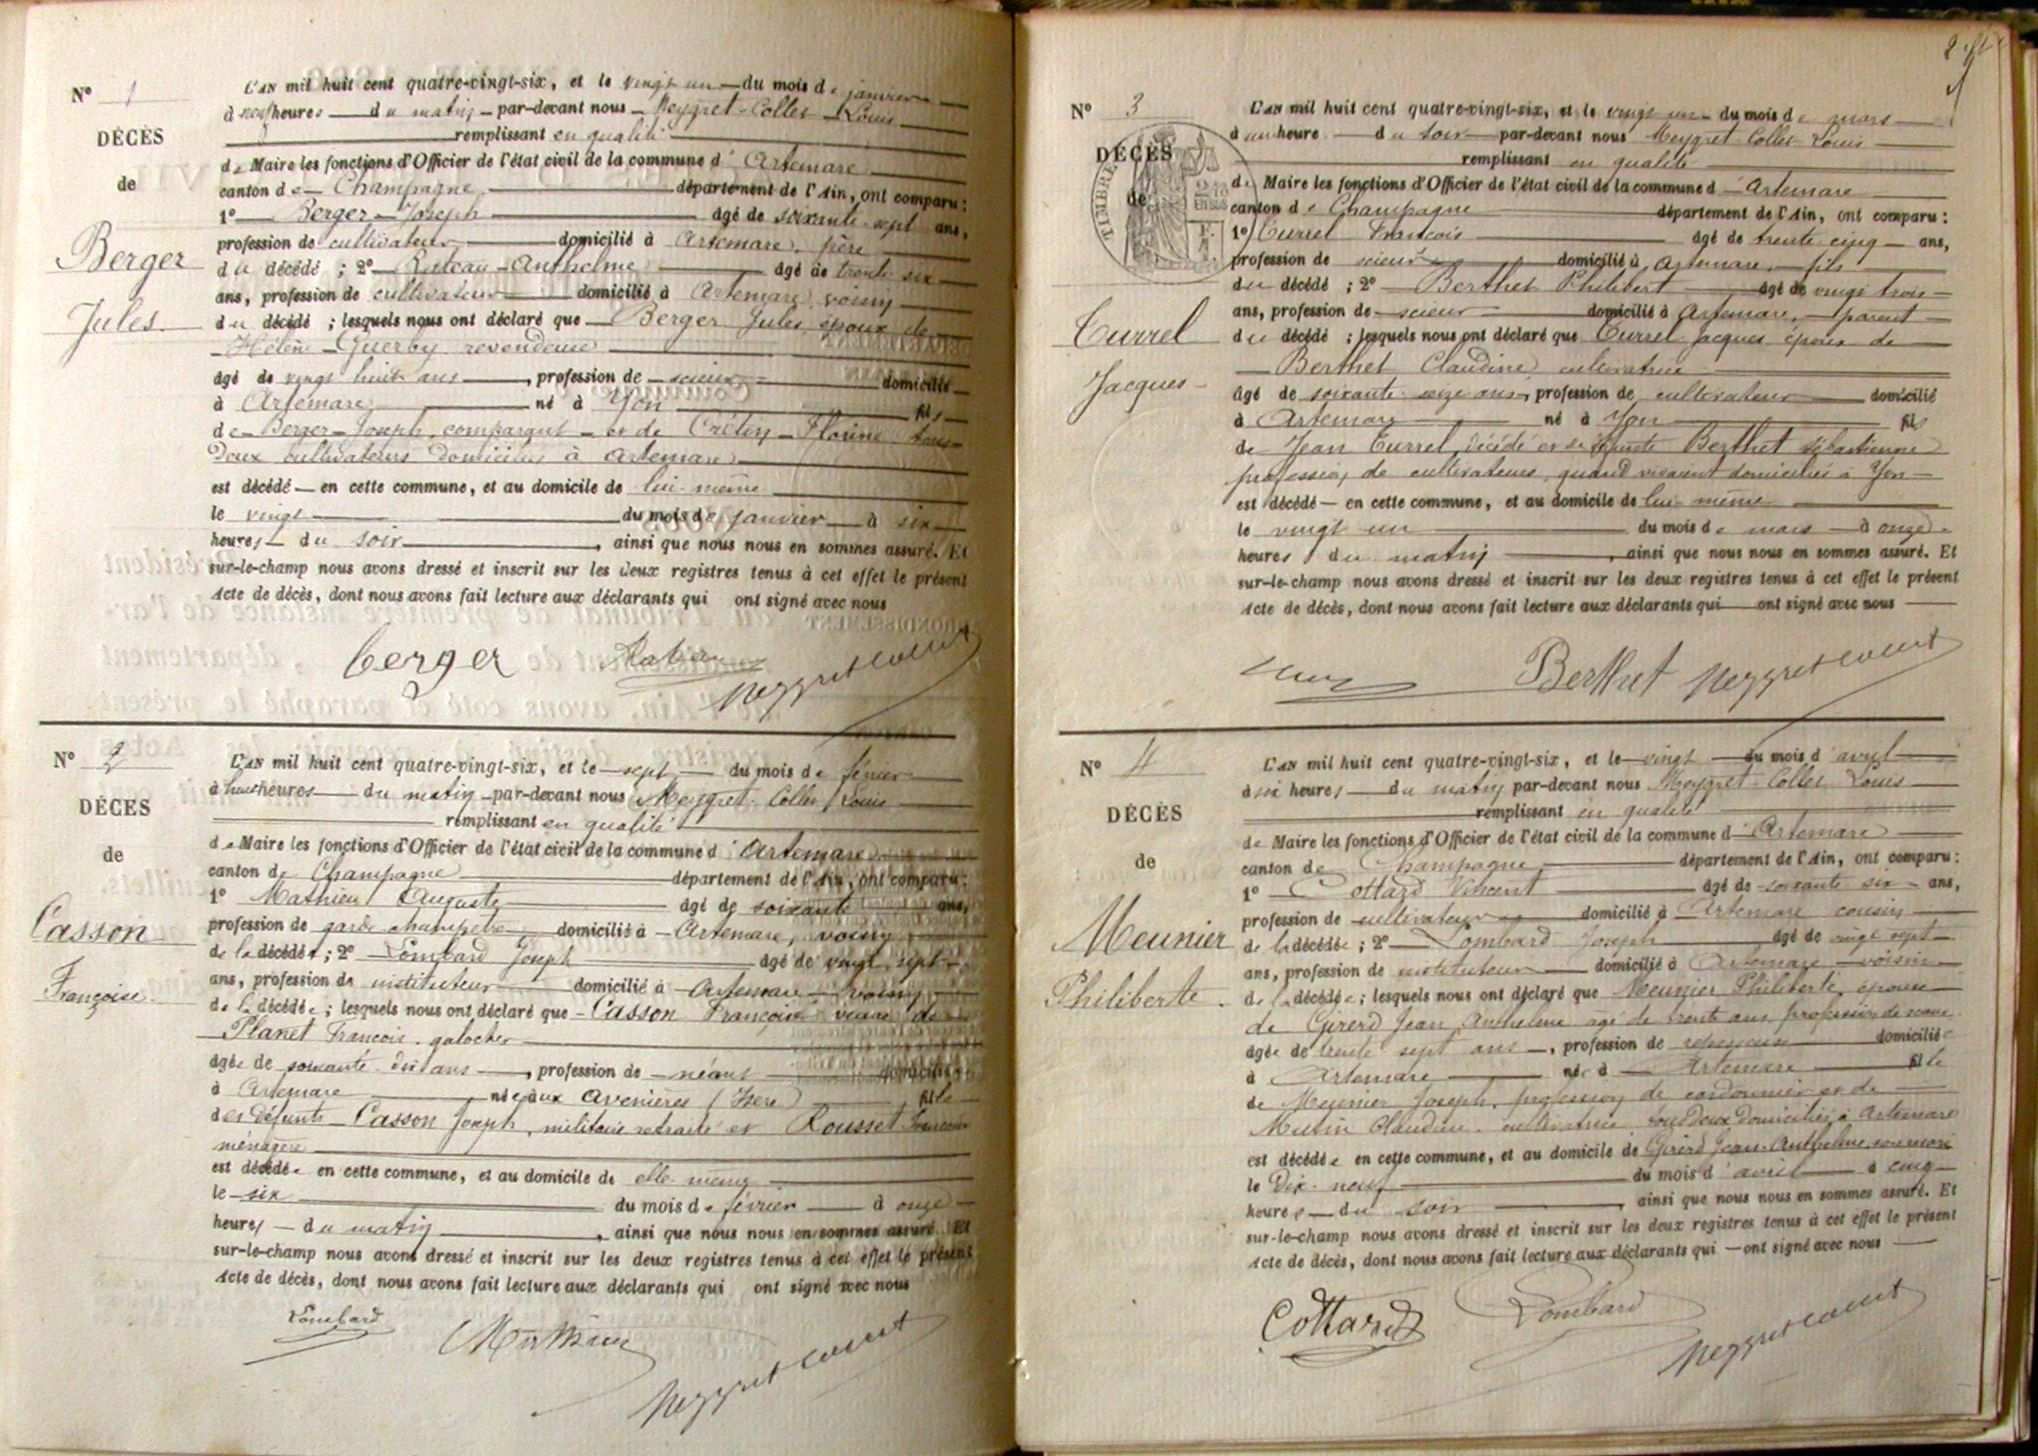 N° 1
DÉCÈS
de
Berger
Jules
L'AN mil huit cent quatre-vingt-six, et le vingt un du mois de janvier
à neuf heures du matin par-devant nous Meygret-Collet Louis
remplissant en qualité
de Maire les fonctions d'Officier de l'état civil de la commune d'Artemare
canton de Champagne département de l'Ain, ont comparu :
1° Berger Joseph âgé de soixante sept ans,
profession de cultivateur domicilié à Artemare, père
du décédé ; 2° Anthelme âgé de trente six
ans, profession de cultivateur domicilié à Artemare voisin
du décédé ; lesquels nous ont déclaré que Berger Jules, époux de
Hélène Guerby revendeuse
âgé de vingt huit ans, profession de scieur domicilié
à Artemare né à Yon fils
de Berger Joseph comparant et de Crétin Florine tous
Deux cultivateurs Domiciliés à Artemare
est décédé en cette commune, et au domicile de lui-même
le vingt du mois de janvier à six
heures du soir, ainsi que nous nous en sommes assuré. Et
sur-le-champ nous avons dressé et inscrit sur les deux registres tenus à cet effet le présent
Acte de décès, dont nous avons fait lecture aux déclarants qui ont signé avec nous
berger Meygret collet
N° 2
DÉCÈS
de
Casson
Françoise
L'AN mil huit cent quatre-vingt-six, et le sept du mois de février
à heures du matin par-devant nous Meygret-Collet Louis
remplissant en qualité
de Maire les fonctions d'Officier de l'état civil de la commune d'Artemare
canton de Champagne département de l'Ain, ont comparu :
1° Mathieu Auguste âgé de soixante ans,
profession de garde champêtre domicilié à Artemare, voisin
de la décédée ; 2° Lombard Joseph âgé de vingt sept
ans, profession de instituteur domicilié à Artemare voisin
de la décédée ; lesquels nous ont déclaré que Casson Françoise veuve de
Planet François. galocher
âgée de soixante dix ans, profession de néant domiciliée
à Artemare née aux Avenières (Isère) fille
des Défunts Casson Joseph, militaire retraité et Rousset Françoise
ménagère
est décédée en cette commune, et au domicile de elle-même
le six du mois de février à onze
heures du matin, ainsi que nous nous en sommes assuré. Et
sur-le-champ nous avons dressé et inscrit sur les deux registres tenus à cet effet le présent
Acte de décès, dont nous avons fait lecture aux déclarants qui ont signé avec nous
Lombard Mathieu Meygret collet
N° 3
DÉCÈS
de
TIMBRE
Currel
Jacques
L'AN mil huit cent quatre-vingt-six, et le vingt un du mois de mars
à un heure du soir par-devant nous Meygret-Collet Louis
remplissant en qualité
de Maire les fonctions d'Officier de l'état civil de la commune d'Artemare
canton de Champagne département de l'Ain, ont comparu :
1° Currel François âgé de trente cinq ans,
profession de scieur domicilié à Artemare, fils
du décédé ; 2° Berthet Philibert âgé de vingt trois
ans, profession de scieur domicilié à Artemare, parent
du décédé ; lesquels nous ont déclaré que Currel Jacques époux de
Berthet Claudine cultivatrice
âgé de soixante seize ans, profession de cultivateur domicilié
à Artemare né à Yon fils
de Jean Currel, décédé et de défunte Berthet Sébastienne
profession de cultivateurs, quand vivaient domiciliés à Yon
est décédé en cette commune, et au domicile de lui-même
le vingt un du mois de mars à onze
heures du matin, ainsi que nous nous en sommes assuré. Et
sur-le-champ nous avons dressé et inscrit sur les deux registres tenus à cet effet le présent
Acte de décès, dont nous avons fait lecture aux déclarants qui ont signé avec nous
Berthet Meygret collet
N° 4
DÉCÈS
de
Meunier
Philiberte
L'AN mil huit cent quatre-vingt-six, et le vingt du mois d'avril
à six heures du matin par-devant nous Meygret-Collet Louis
remplissant en qualité
de Maire les fonctions d'Officier de l'état civil de la commune d'Artemare
canton de Champagne département de l'Ain, ont comparu :
1° Cottard Vincent âgé de soixante six ans,
profession de cultivateur domicilié à Artemare cousin
de la décédée ; 2° Lombard Joseph âgé de vingt sept
ans, profession de instituteur domicilié à Artemare voisin
de la décédée ; lesquels nous ont déclaré que Meunier Philiberte, épouse
de Girerd Jean Anthelme âgé de trente ans profession de
âgée de trente sept ans, profession de domiciliée
à Artemare née à Artemare fille
de Meunier Joseph, profession de cordonnier et de
Mutin Claudine, cultivatrice, tous Deux Domiciliés à Artemare
est décédée en cette commune, et au domicile de Girerd Jean-Anthelme, son mari
le Dix-neuf du mois d'avril à cinq
heures du soir, ainsi que nous nous en sommes assuré. Et
sur-le-champ nous avons dressé et inscrit sur les deux registres tenus à cet effet le présent
Acte de décès, dont nous avons fait lecture aux déclarants qui ont signé avec nous
Cottard Lombard Meygret collet